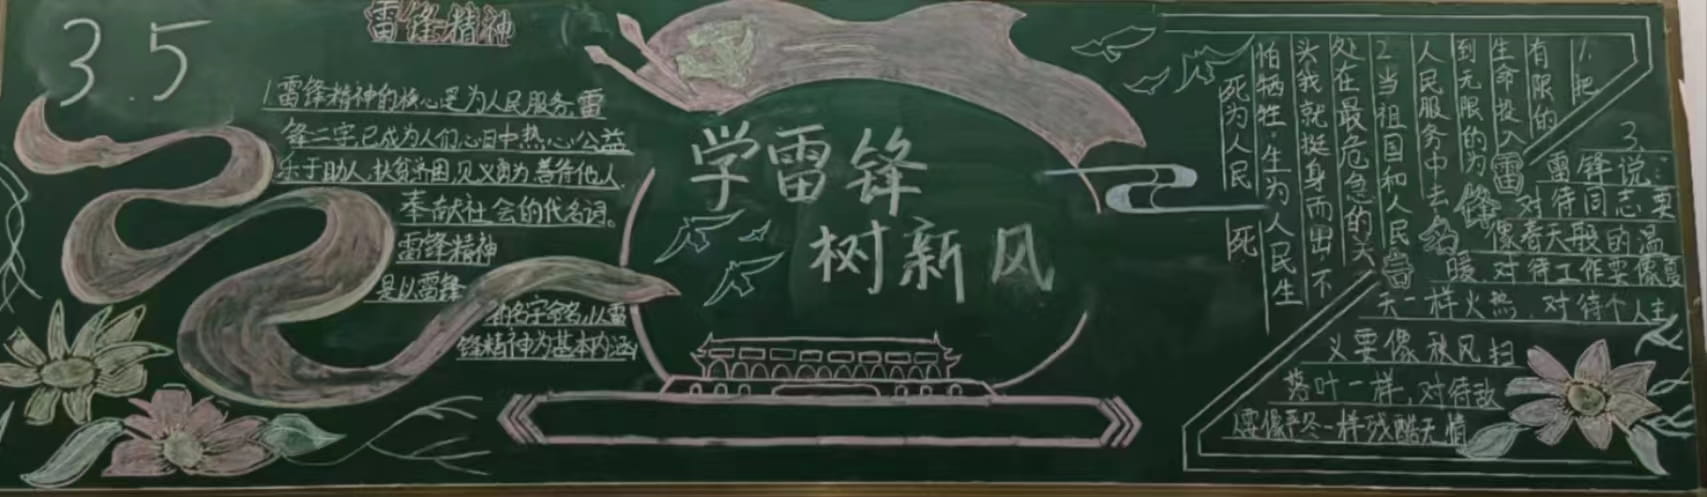 3.5
雷锋精神
1雷锋精神的核心是为人民服务,雷
锋二字,已成为人们心目中,热心公益
乐于助人,扶贫济困,见义勇为,善待他人,
奉献社会的代名词。
雷锋精神
是以雷锋
的名字命名,以雷
锋精神为基本内涵
学雷锋
树新风
1.把
有限的
生命投入
到无限的为
人民服务中去
2.当祖国和人民
处在最危急的关
头我就挺身而出,不
怕牺牲.生为人民生
死为人民死
雷锋
名言
3.
雷锋说:
对待同志要
像春天般的温
暖,对待工作要像夏
天一样火热,对待个人主
义要像秋风扫
落叶一样,对待敌
人要像严冬一样残酷无情